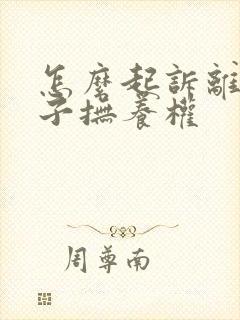 怎麼起訴離
子撫養權
周尊南